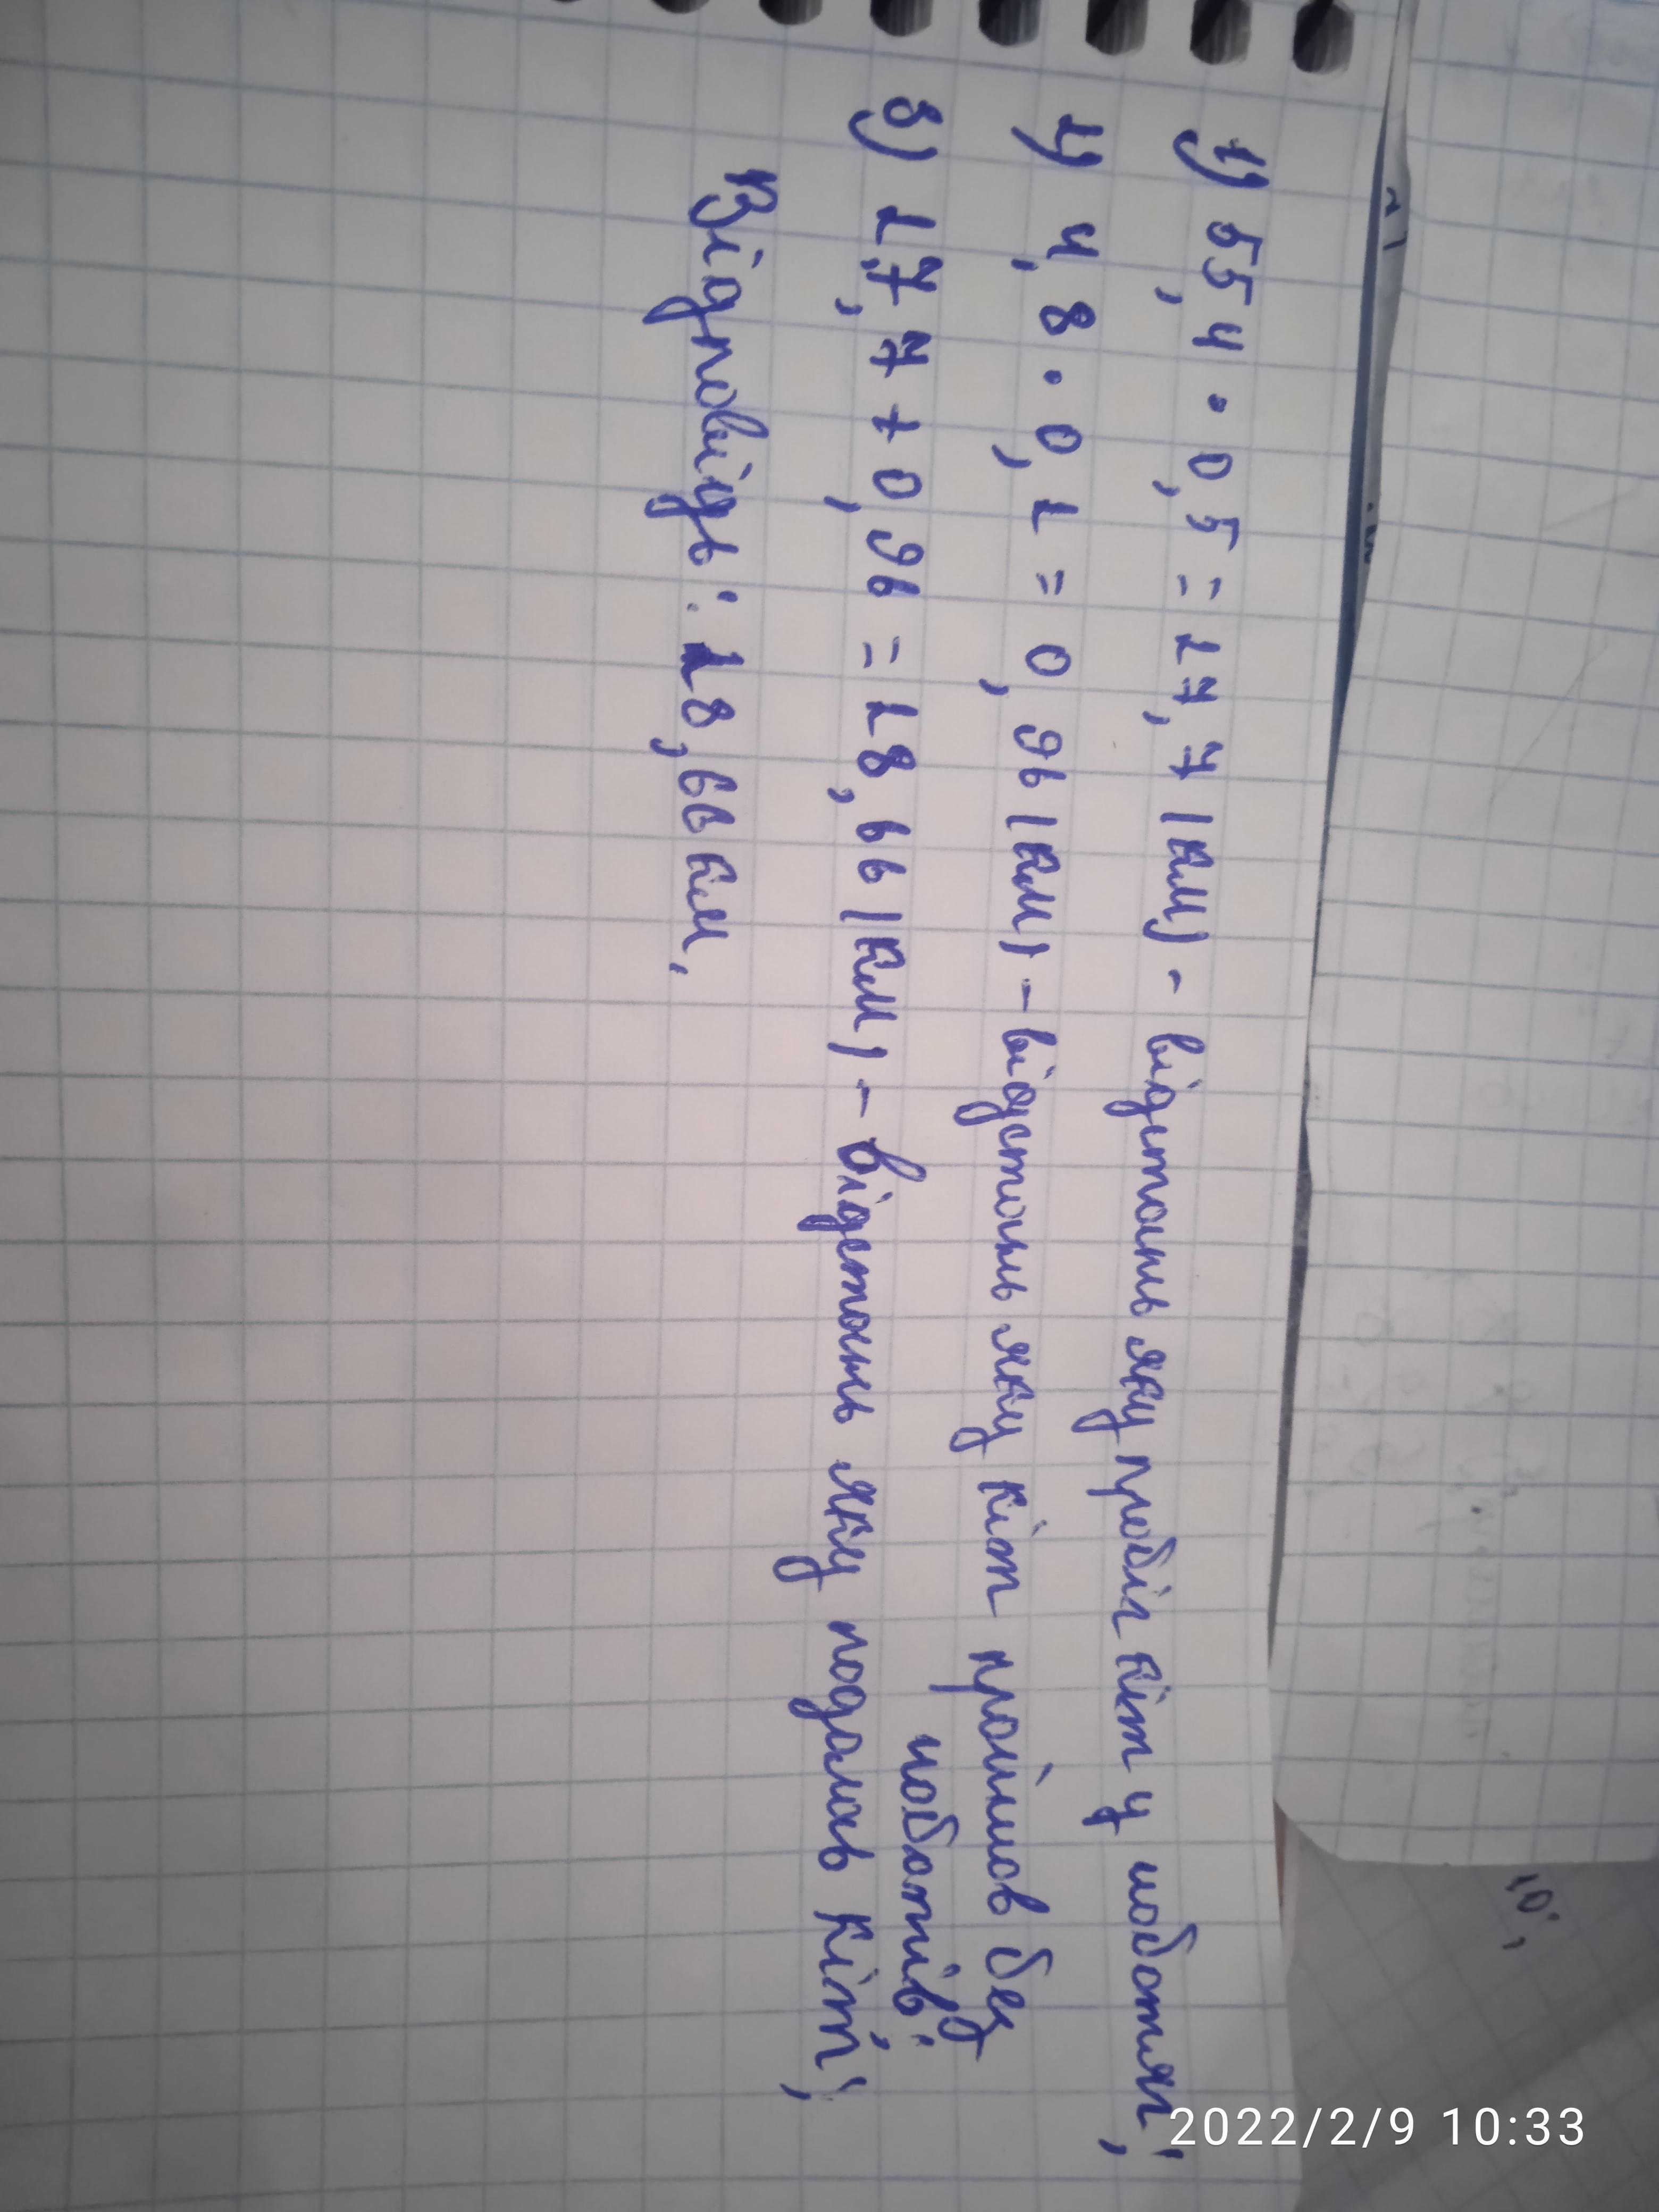 1) 55,4 · 0,5 = 27,7 (км) - відстань яку пробіг кіт у чоботях;
2) 4,8 · 0,2 = 0,96 (км) - відстань яку кіт пройшов без
чоботів;
3) 27,7 + 0,96 = 28,66 (км) - відстань яку подолав кіт;
Відповідь: 28,66 км.
2022/2/9 10:33